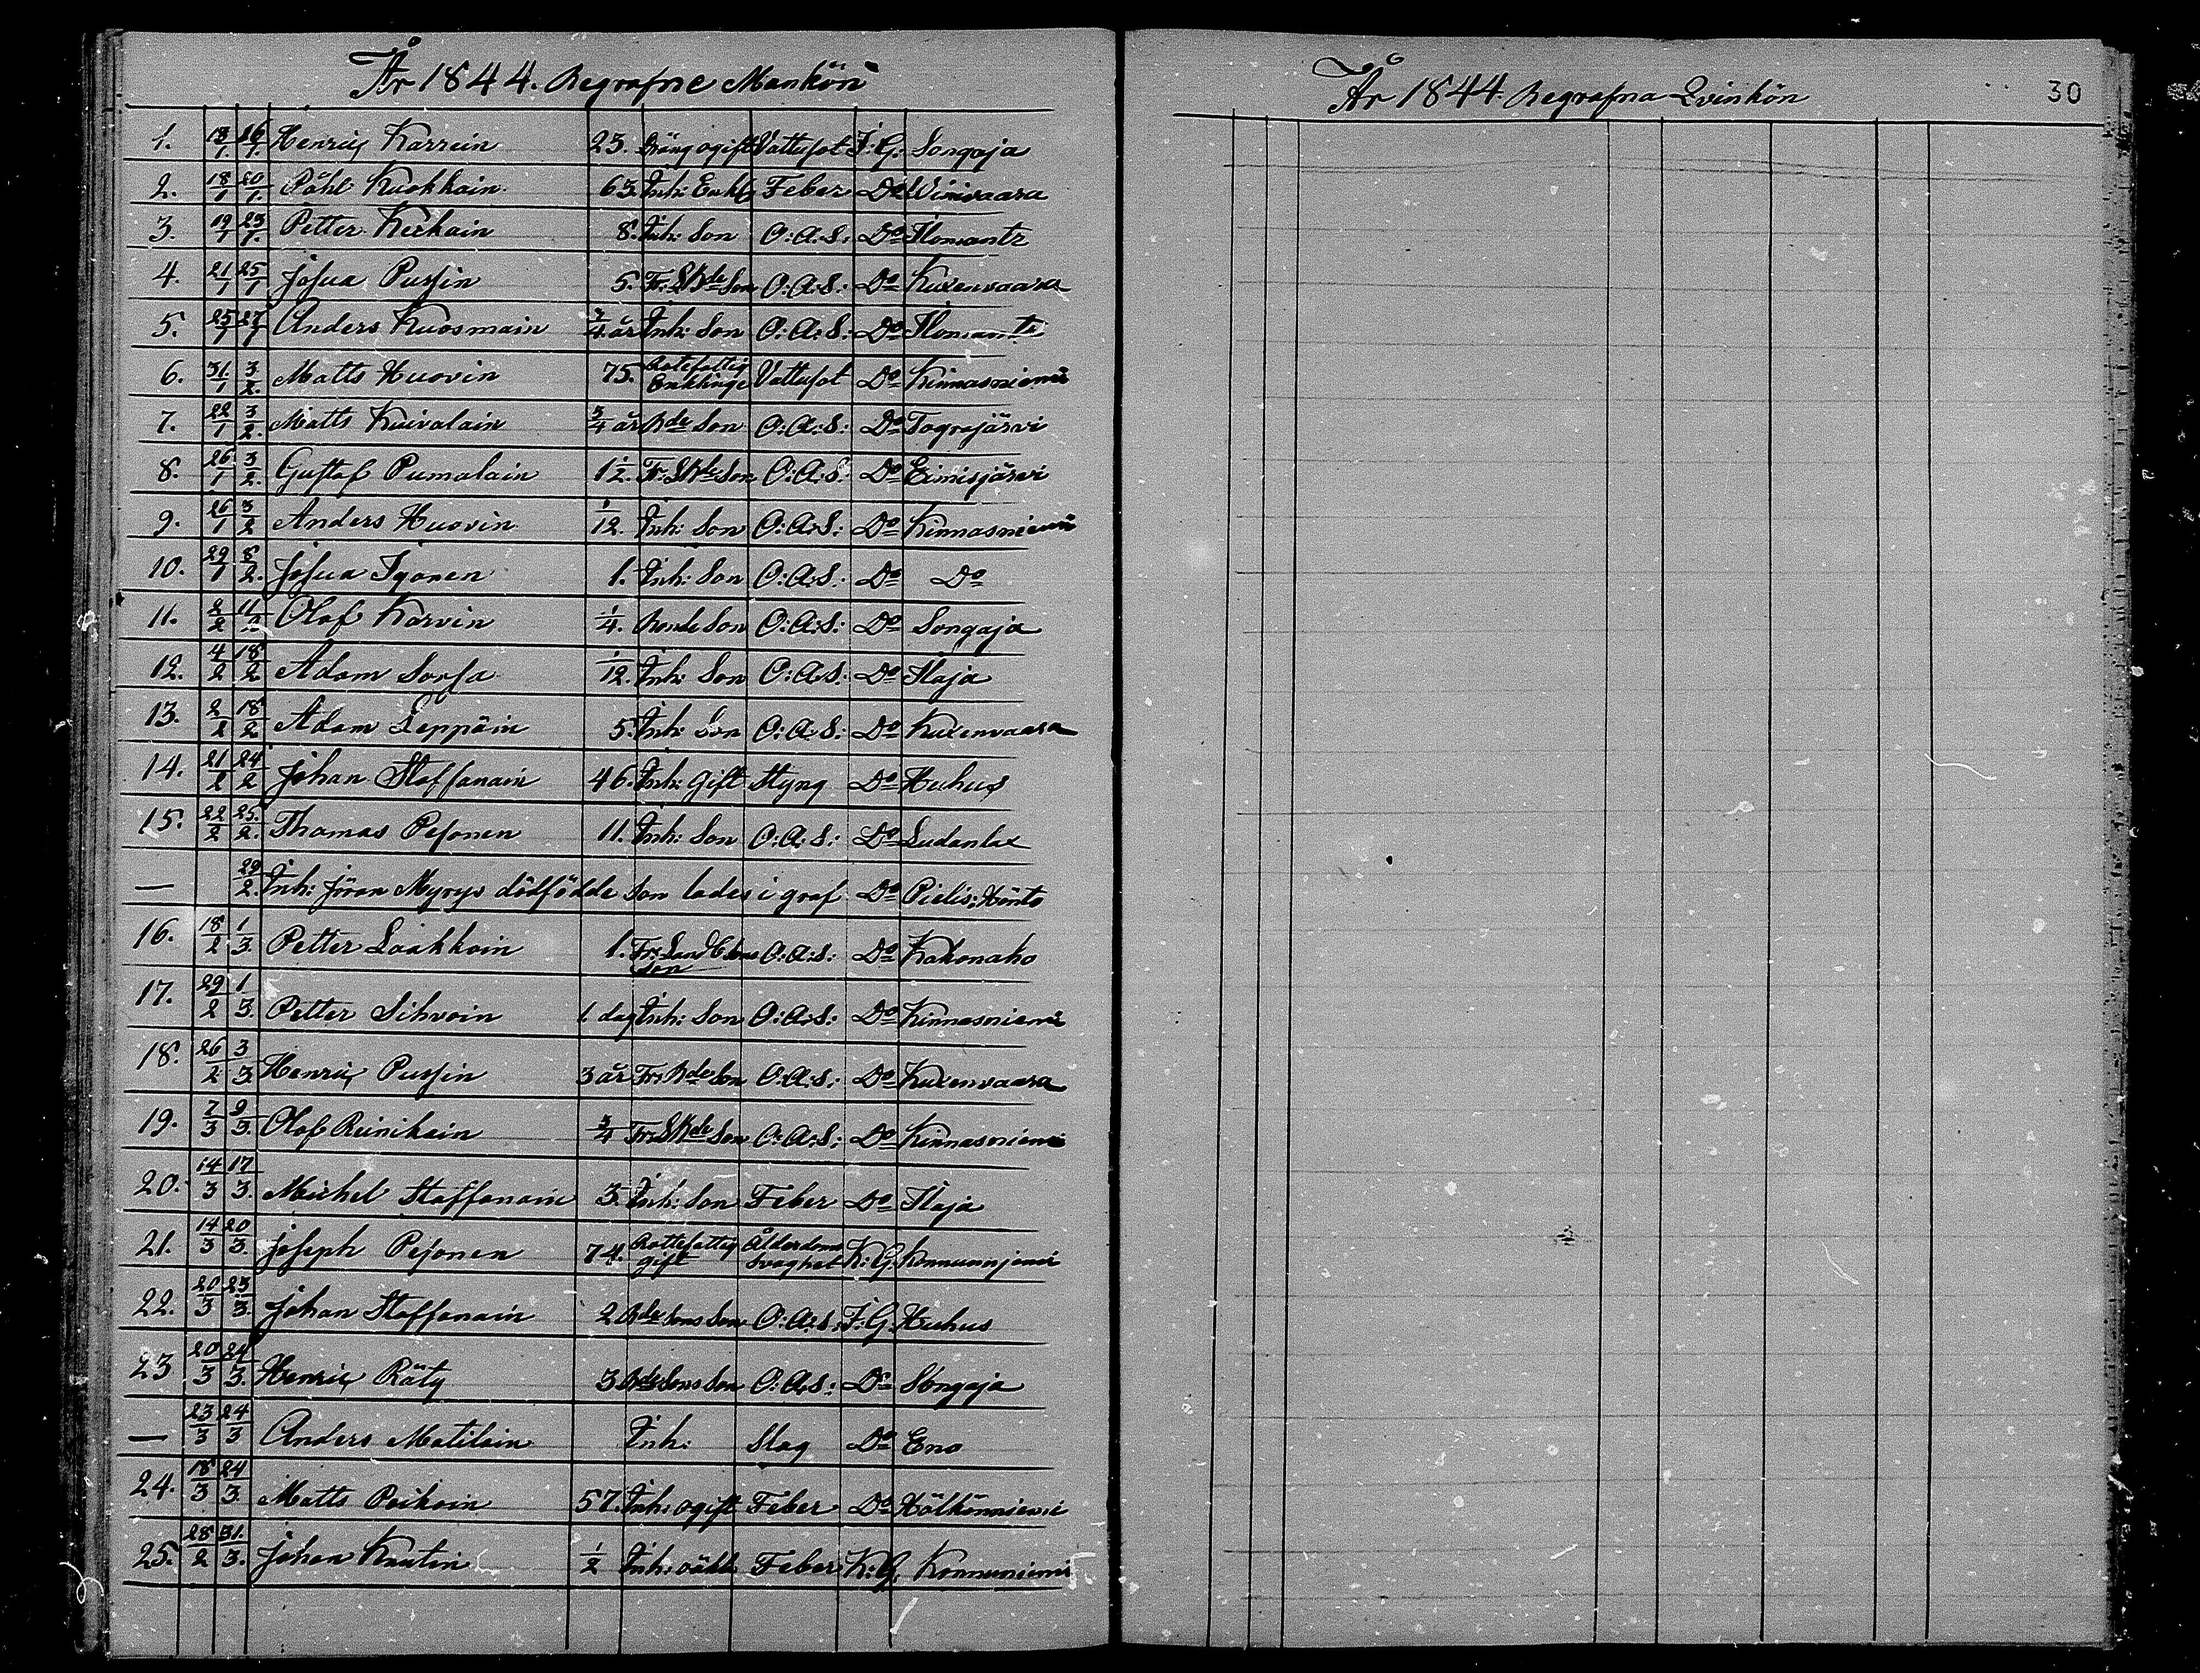 År 1844. Begrafne Mankön
1. 13/1. 16/1. Henrix Karrein 23. Dräng ogift Vattusot I: G: Songaja
2. 18/1 20/1. Påhl Kuokkain 63. Inh: Enkl: Feber Do Winivaara
3. 19/1 23/1. Petter Keckain 8. Inh: Son O: A: S: Do Ilomantz
4. 21/1 25/1 Josua Pussin 5. Fr: SkBde Son O: A: S: Do Kuxenvaara
5. 25/1 27/1 Anders Kuosmain 3/4 år Inh: Son O: A: S: Do Ilomants
6. 31/1 3/2. Matts Huovin 75. Rotefattig Enklinge Vattusot Do Kinnasniemi
7. 22/1 3/2. Matts Kuivalain 3/4 år Bde Son O: A: S: Do Tograjärvi
8. 26/1 3/2. Gustaf Pumalain 1 1/2. Fr: SkBde Son O: A: S: Do Eimisjärvi
9. 26/1 3/2 Anders Huovin 1/12. Inh: Son O: A: S: Do Kinnasniemi
10. 29/1 8/2. Josua Igonen 1. Inh: Son O: A: S: Do Do
11. 2/2 11/2 Olof Karvin 1/4. Bonde Son O: A: S: Do Songaja
12. 4/2 18/2 Adam Sorsa 1/12. Inh: Son O: A: S: Do Ilaja
13. 2/2 18/2 Adam Leppäin 5. Inh: Son O: A: S: Do Kuxenvaara
14. 21/2 24/2 Johan Staffanain 46. Inh: Gift Styng Do Huhus
15. 22/2 25/2. Thomas Pesonen 11. Inh: Son O: A: S: Do Ludanlax
— 29/2. Inh: Jöran Myrys dödfödde Son lades i graf Do Pielis: Hönto
16. 18/2 1/3. Petter Laakkoin 1. Fr: Land Bons Son O: A: S: Do Kakonaho
17. 29/2 1/3. Petter Sihvoin 1. dag Inh: Son O: A: S: Do Kinnasniemi
18. 26/2 3/3. Henrix Pussin 3 år Fr: Bde Son O: A: S: Do Kuxenvaara
19. 7/3 9/3. Olof Reinikain 3/4 Fr: SkBde Son O: A: S: Do Kinnasniemi
20. 14/3 17/3. Michel Staffanain 3. Inh: Son Feber Do Ilaja
21. 14/3 20/3. Joseph Pesonen 74. Rottefattig gift Ålderdoms Svaghet K: G. Konnunniemi
22. 20/3 23/3. Johan Staffanain 2 Bde Sons Son O: A: S: I: G Huhus
23 20/3 24/3. Henrix Räty 3 Bde Sons Son O: A: S: Do Songaja
— 23/3 24/3 Anders Matilain Inh: Slag Do Eno
24. 18/3 24/3. Matts Poikoin 57. Inh: ogift Feber Do Hölkönniemi
25. 28/2 31/3. Johan Knutin 1/2 Inh: oäkta Feber K: G. Konnuniemi
År 1844. Begrafna Qvinkön
30